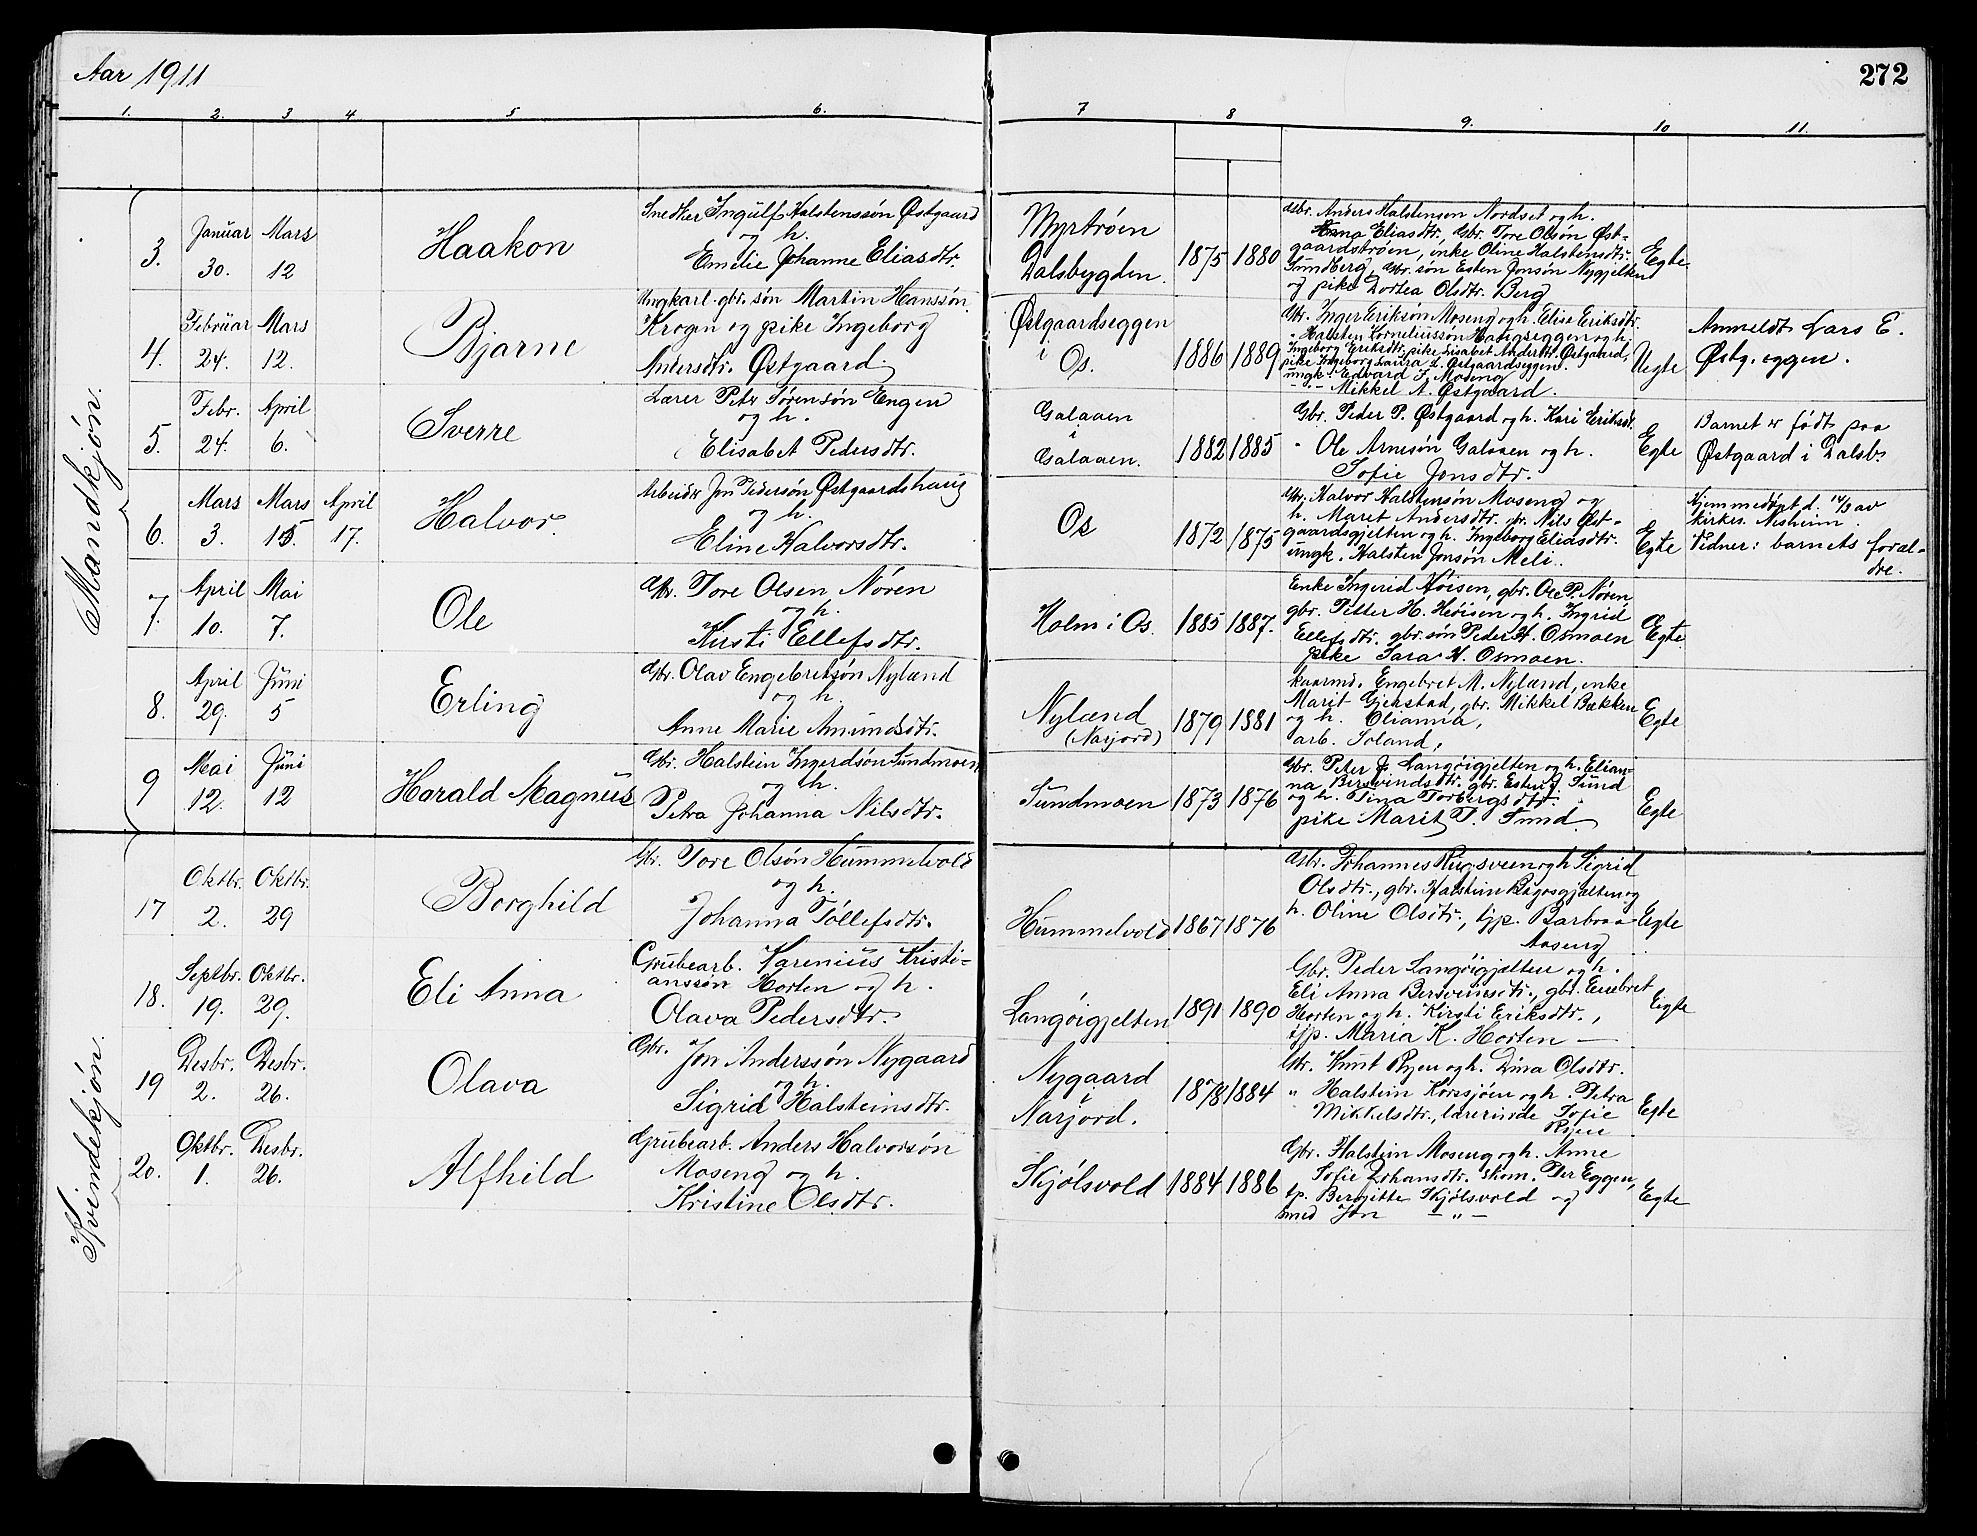 Aar 1911
272
1. 2. 3 4. 5 6. 7 8 9. 10 11.
Mandkjøn.
3. Januar 30. Mars 12
Haakon
Snedker Ingulf Halstenssøn Østgaard
og h.
Emelie Johanne Eliasdtr.
Myrtrøen
Dalsbygden.
1875 1880
Gbr. Anders Halstensen Nordset og h.
Anna Eliasdtr, Gbr. Tore Olsøn Øst-
gaardstrøen, enke Oline Halstensdtr.
Sundberg, Gbr. søn Esten Jonsøn Nygjelten
og pike Dortea Olsdtr. Berg
Egte
4. Februar 24. Mars 12.
Bjarne
Ungkarl gbr. søn Martin Hanssøn
Krogen og pike Ingeborg
Andersdtr. Østgaard
Østgaardseggen
i
Os.
1886 1889
Gbr. Inger Eriksøn Moseng og h. Elise Eriksdtr.
" Halsten Korneliussøn Haugseggen og h.
Ingeborg Eriksdtr, pike Lisabet Andersdtr. Østgaard,
pike Ingeborg Laura L. Østgaardseggen.
ungk. Edvard J. Moseng
- " - Mikkel A. Østgaard.
Uegte
Anmeldt Lars E.
Østg. eggen.
5. Febr. 24. April 6.
Sverre
Lærer Petr Sørensøn Engen
og h.
Elisabet Pedersdtr.
Galaaen
i
Galaaen.
1882 1885
Gbr. Peder P. Østgaard og h. Kari Eriksdt.
" Ole Arnesøn Galaaen og h.
Sofie Jonsdtr.
Egte
Barnet er født paa
Østgaard i Dalsb.
6. Mars 3. Mars 15. April 17.
Halvor.
Arbeider Jon Pedersøn Østgaardshaug
og h.
Eline Halvorsdtr.
Os
1872 1875
Gbr. Halvor Halstensøn Moseng og
h. Maret Andersdtr. gbr. Nils Øst-
gaardsgjelten og h. Ingeborg Eliasdtr.
ungk. Halsten Jonsøn Meli.
Egte
Hjemmedøpt d. 14/3 av
kirkes. Nesheim.
Vidner: barnets foræl-
dre.
7. April 10. Mai 7.
Ole
Gbr. Tore Olsen Nøren
og h.
Kirsti Ellefsdtr.
Holm i Os.
1885 1887.
Enke Ingerid Høisen, gbr. Ole P. Nøren
gbr. Petter H. Høisen og h. Ingrid
Ellefsdtr. gbr. søn Peder H. Osmoen
pike Sara H. Osmoen.
Egte
8. April 29. Juni 5
Erling
Gbr. Olav Engebretsøn Nylænd
og h.
Anne Marie Amundsdtr.
Nylænd
(Narjord)
1879 1881
kaarmd. Engebret M. Nylænd, enke
Marit Gjelstad, gbr. Mikkel Bækken
og h. Olianna,
arb. Soland,
Egte
9 Mai 12. Juni 12
Harald Magnus
Gbr. Halstein Ingerdsøn Sundmoen
og h.
Petra Johanna Nilsdtr.
Sundmoen
1873 1876
Gbr. Peter J. Langøigjelten og h. Elian-
na Bersvendsdtr. gbr. Esten J. Sund
og h. Tina Torbergsdtr.
pike Marit T. Sund
Egte
Kvindekjøn.
17 Oktbr. 2. Oktbr. 29
Borghild
Gbr. Tore Olsøn Hummelvold
og h.
Johanna Tøllefsdtr.
Hummelvold
1867 1876
Gbr. Johannes Rugsveen og h. Sigrid
Olsdtr., gbr. Halstein Rogosgjelten og
h. Oline Olsdtr., tjp. Barbroa
Aaseng
Egte
18. Septbr. 19. Oktbr. 29.
Eli Anna
Grubearb. Karenius Kristi-
anssøn Horten og h.
Olava Pedersdtr.
Langøigjelten
1891 1890
Gbr. Peder Langøigjelten og h.
Eli Anna Bersveinsdtr., gbr. Enebret
Horten og h. Kirsti Eriksdtr.,
tjp. Maria K. Horten —
Egte
19 Desbr. 2. Desbr. 26.
Olava
Gbr. Jon Anderssøn Nygaard
og h.
Sigrid Halsteinsdtr.
Nygaard
i
Narjord.
1878 1884
Gbr. Knut Ryen og h. Dina Olsdtr.
" Halstein Korssjøen og h. Petra
Mikkelsdtr, lærerinde Sofie
Ryen
Egte
20. Oktbr. 1. Desbr. 26.
Alfhild
Grubearb. Anders Halvorsøn
Moseng og h.
Kristine Olsdtr.
Skjølsvold
1884 1886
Gbr. Halstein Moseng og h. Anne
Sofie Johansdtr. skom. Per Eggen,
tp. Bergitte Skjølsvold og
smed Jon — " —
Egte